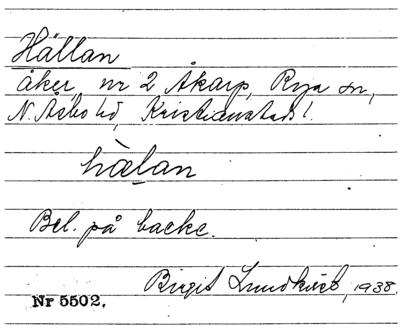 Hällan
åker, nr 2 Åkarp, Rya sn,
N. Åsbo hd, Kristianstads l.
hæl̥an
Bel. på backe.
Birgit Lundkvist, 1938.
Nr 5502.